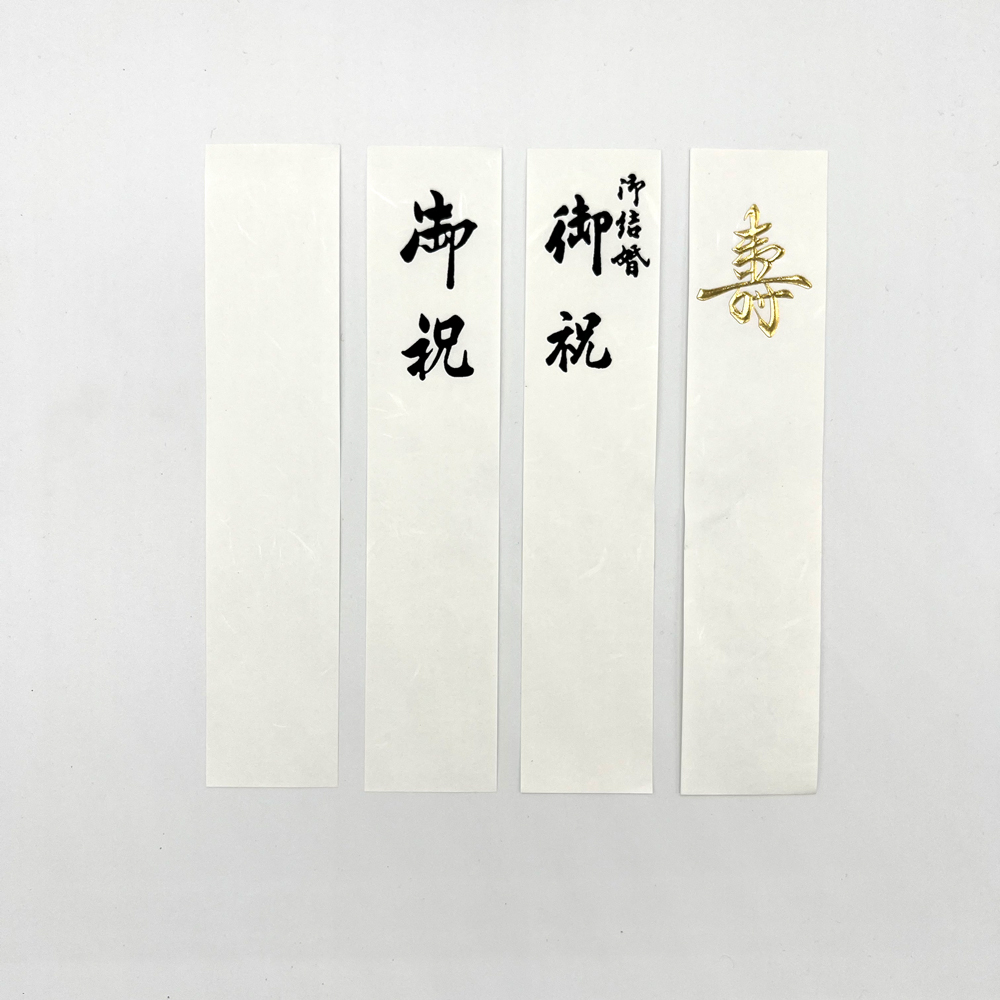 御祝
御結婚
御祝
壽